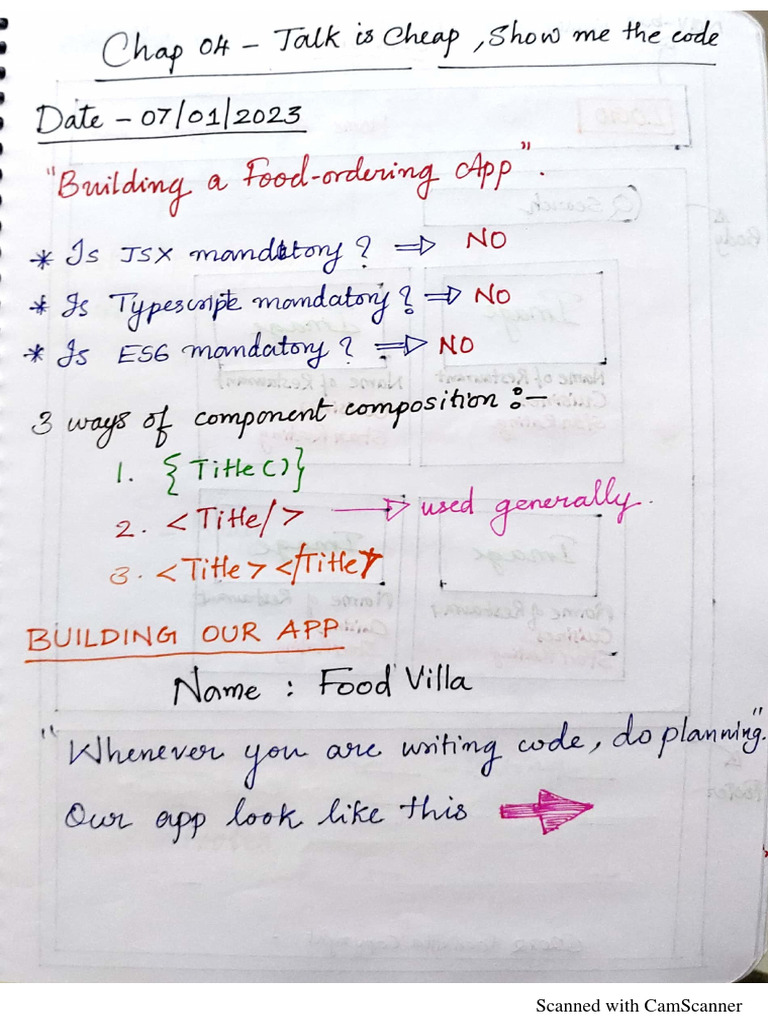 Chap 04 - Talk is Cheap, Show me the code
Date - 07/01/2023
"Building a Food-ordering App".
* Is JSX mandatory? ⇒ NO
* Is Typescript mandatory? ⇒ NO
* Is ES6 mandatory? ⇒ NO
3 ways of component composition :-
1. {Title()}
2. <Title/> → used generally.
3. <Title></Title>
BUILDING OUR APP
Name : Food Villa
"Whenever you are writing code, do planning".
Our app look like this →
Scanned with CamScanner